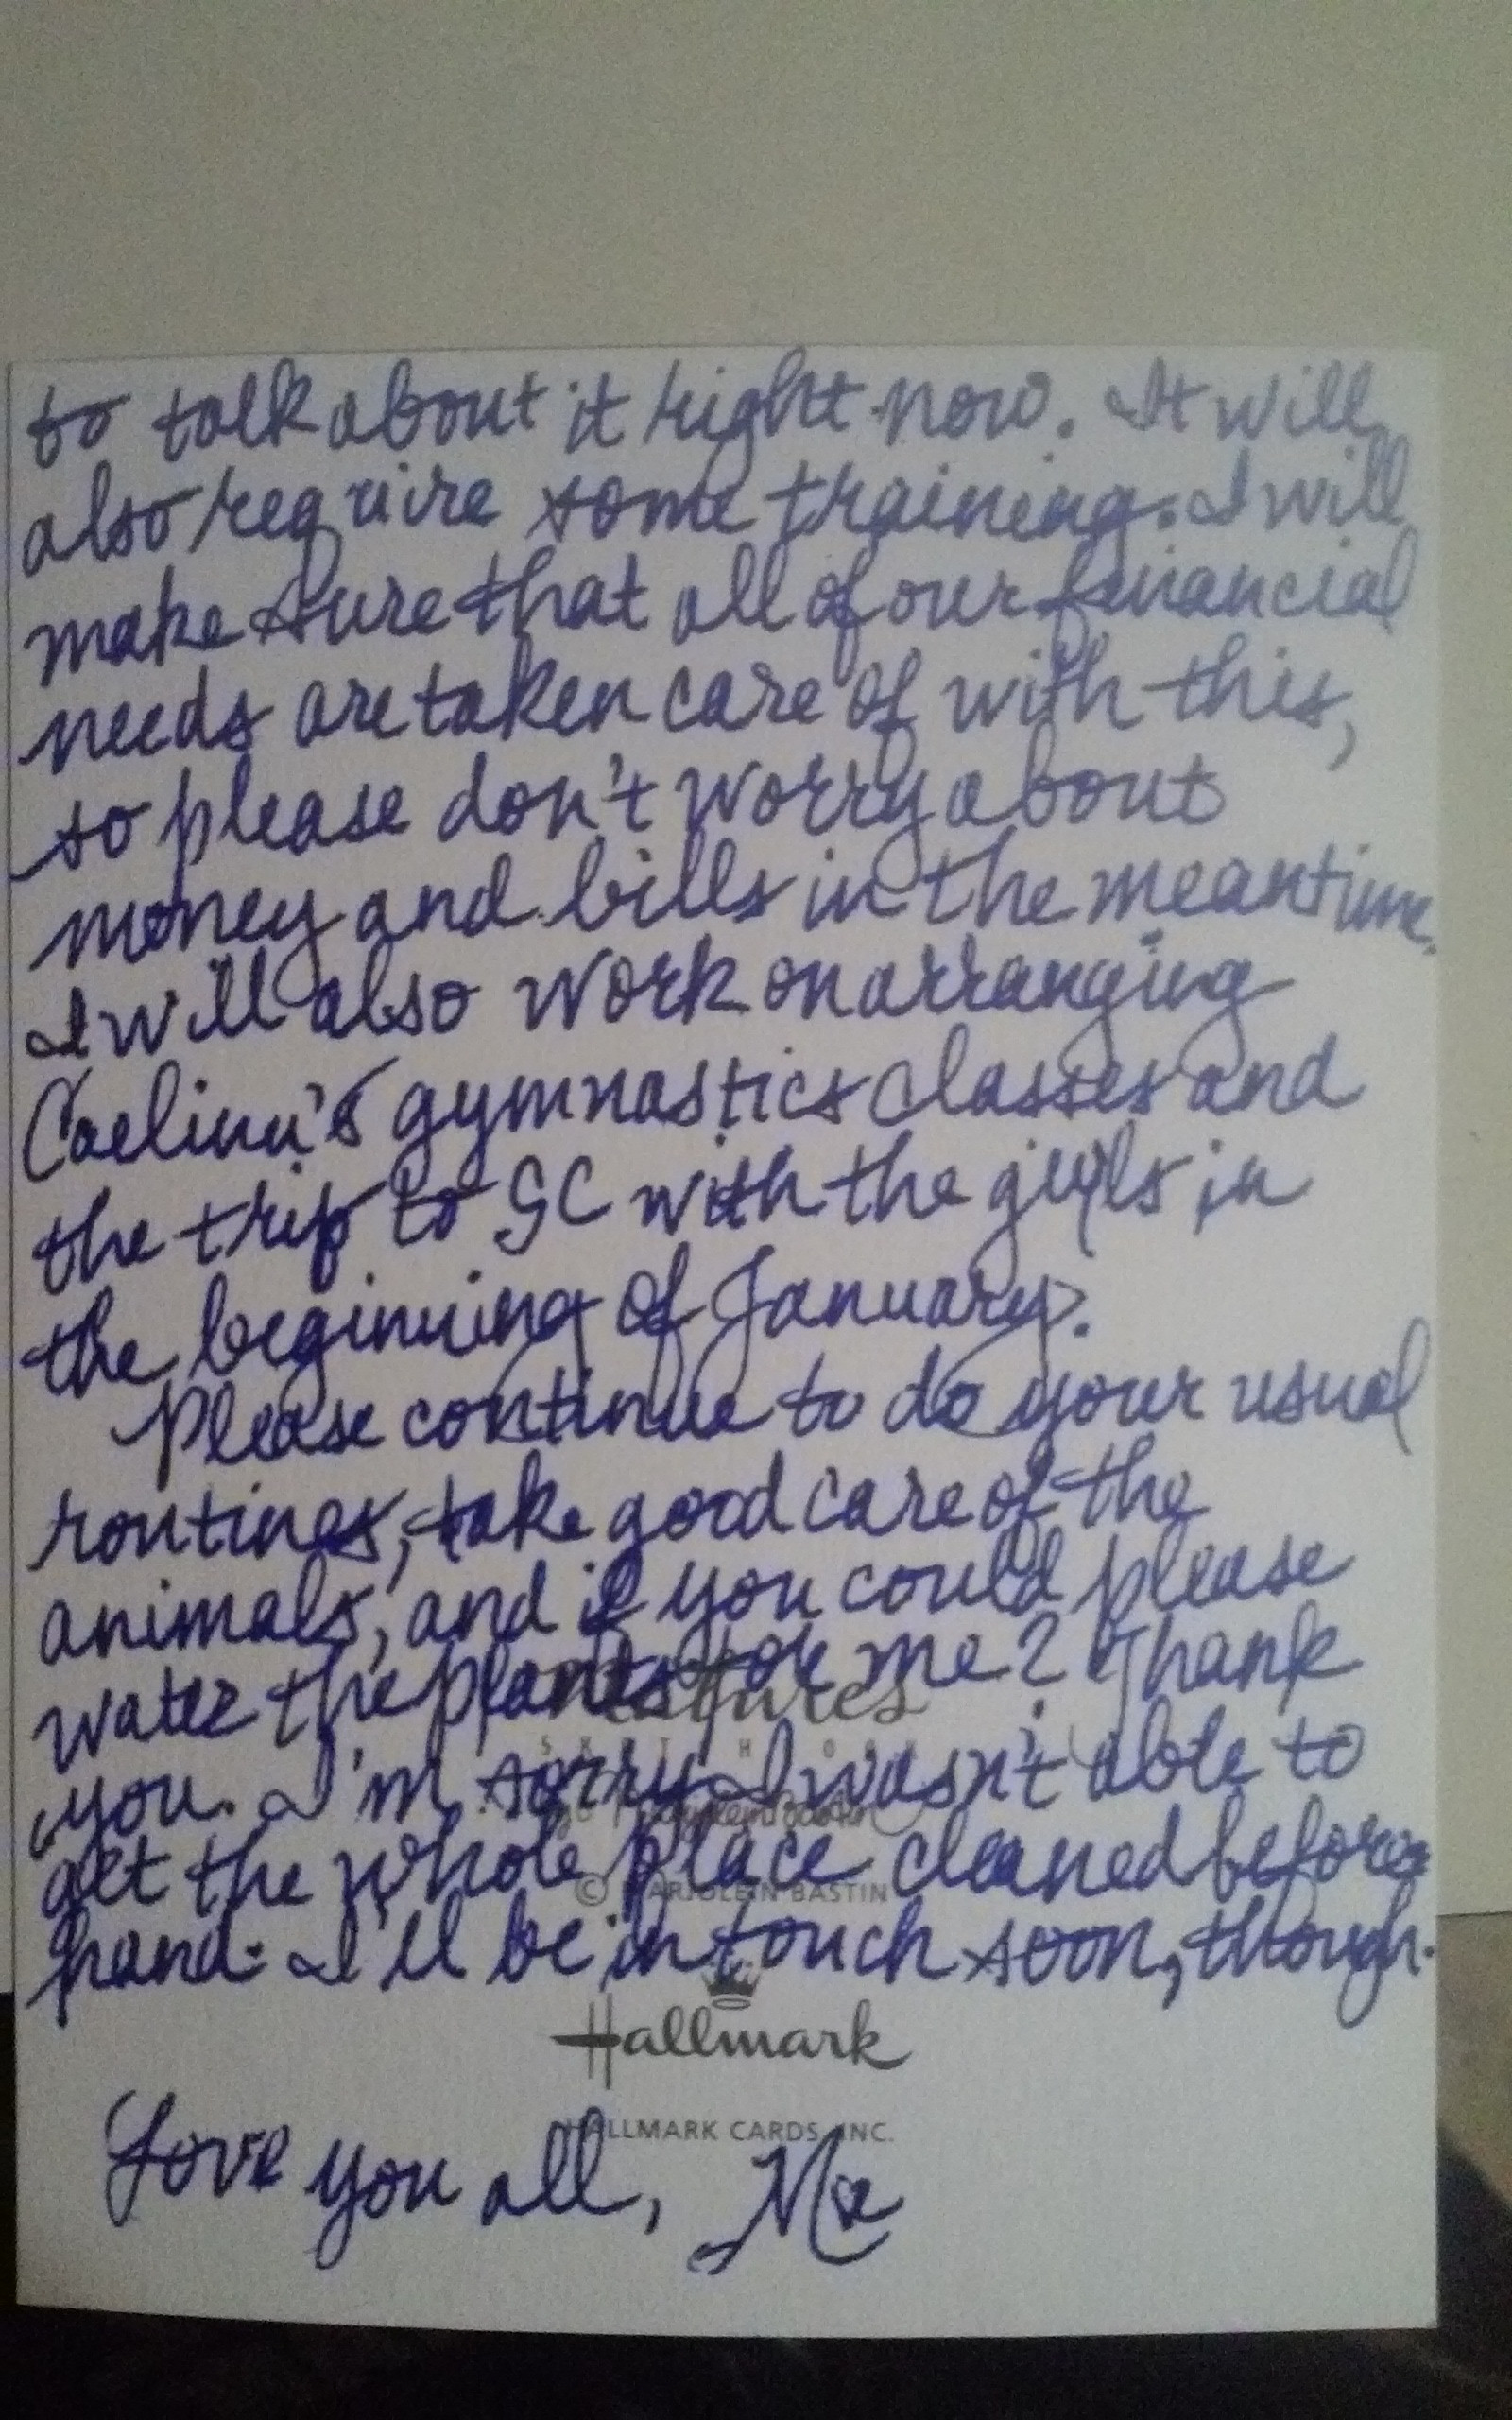 to talk about it right now. It will
also require some training. I will
make sure that all of our financial
needs are taken care of with this,
so please don't worry about
money and bills in the meantime.
I will also work on arranging
gymnastics classes and
the trip to GC with the girls in
the beginning of January.
Please continue to do your usual
routines, take good care of the
animals, and if you could please
water the plants for me? Thank
you. I'm sorry I wasn't able to
get the whole place cleaned before
hand. I'll be in touch soon, though.
© MARJOLEIN BASTIN
Hallmark
HALLMARK CARDS, INC.
Love you all, Me